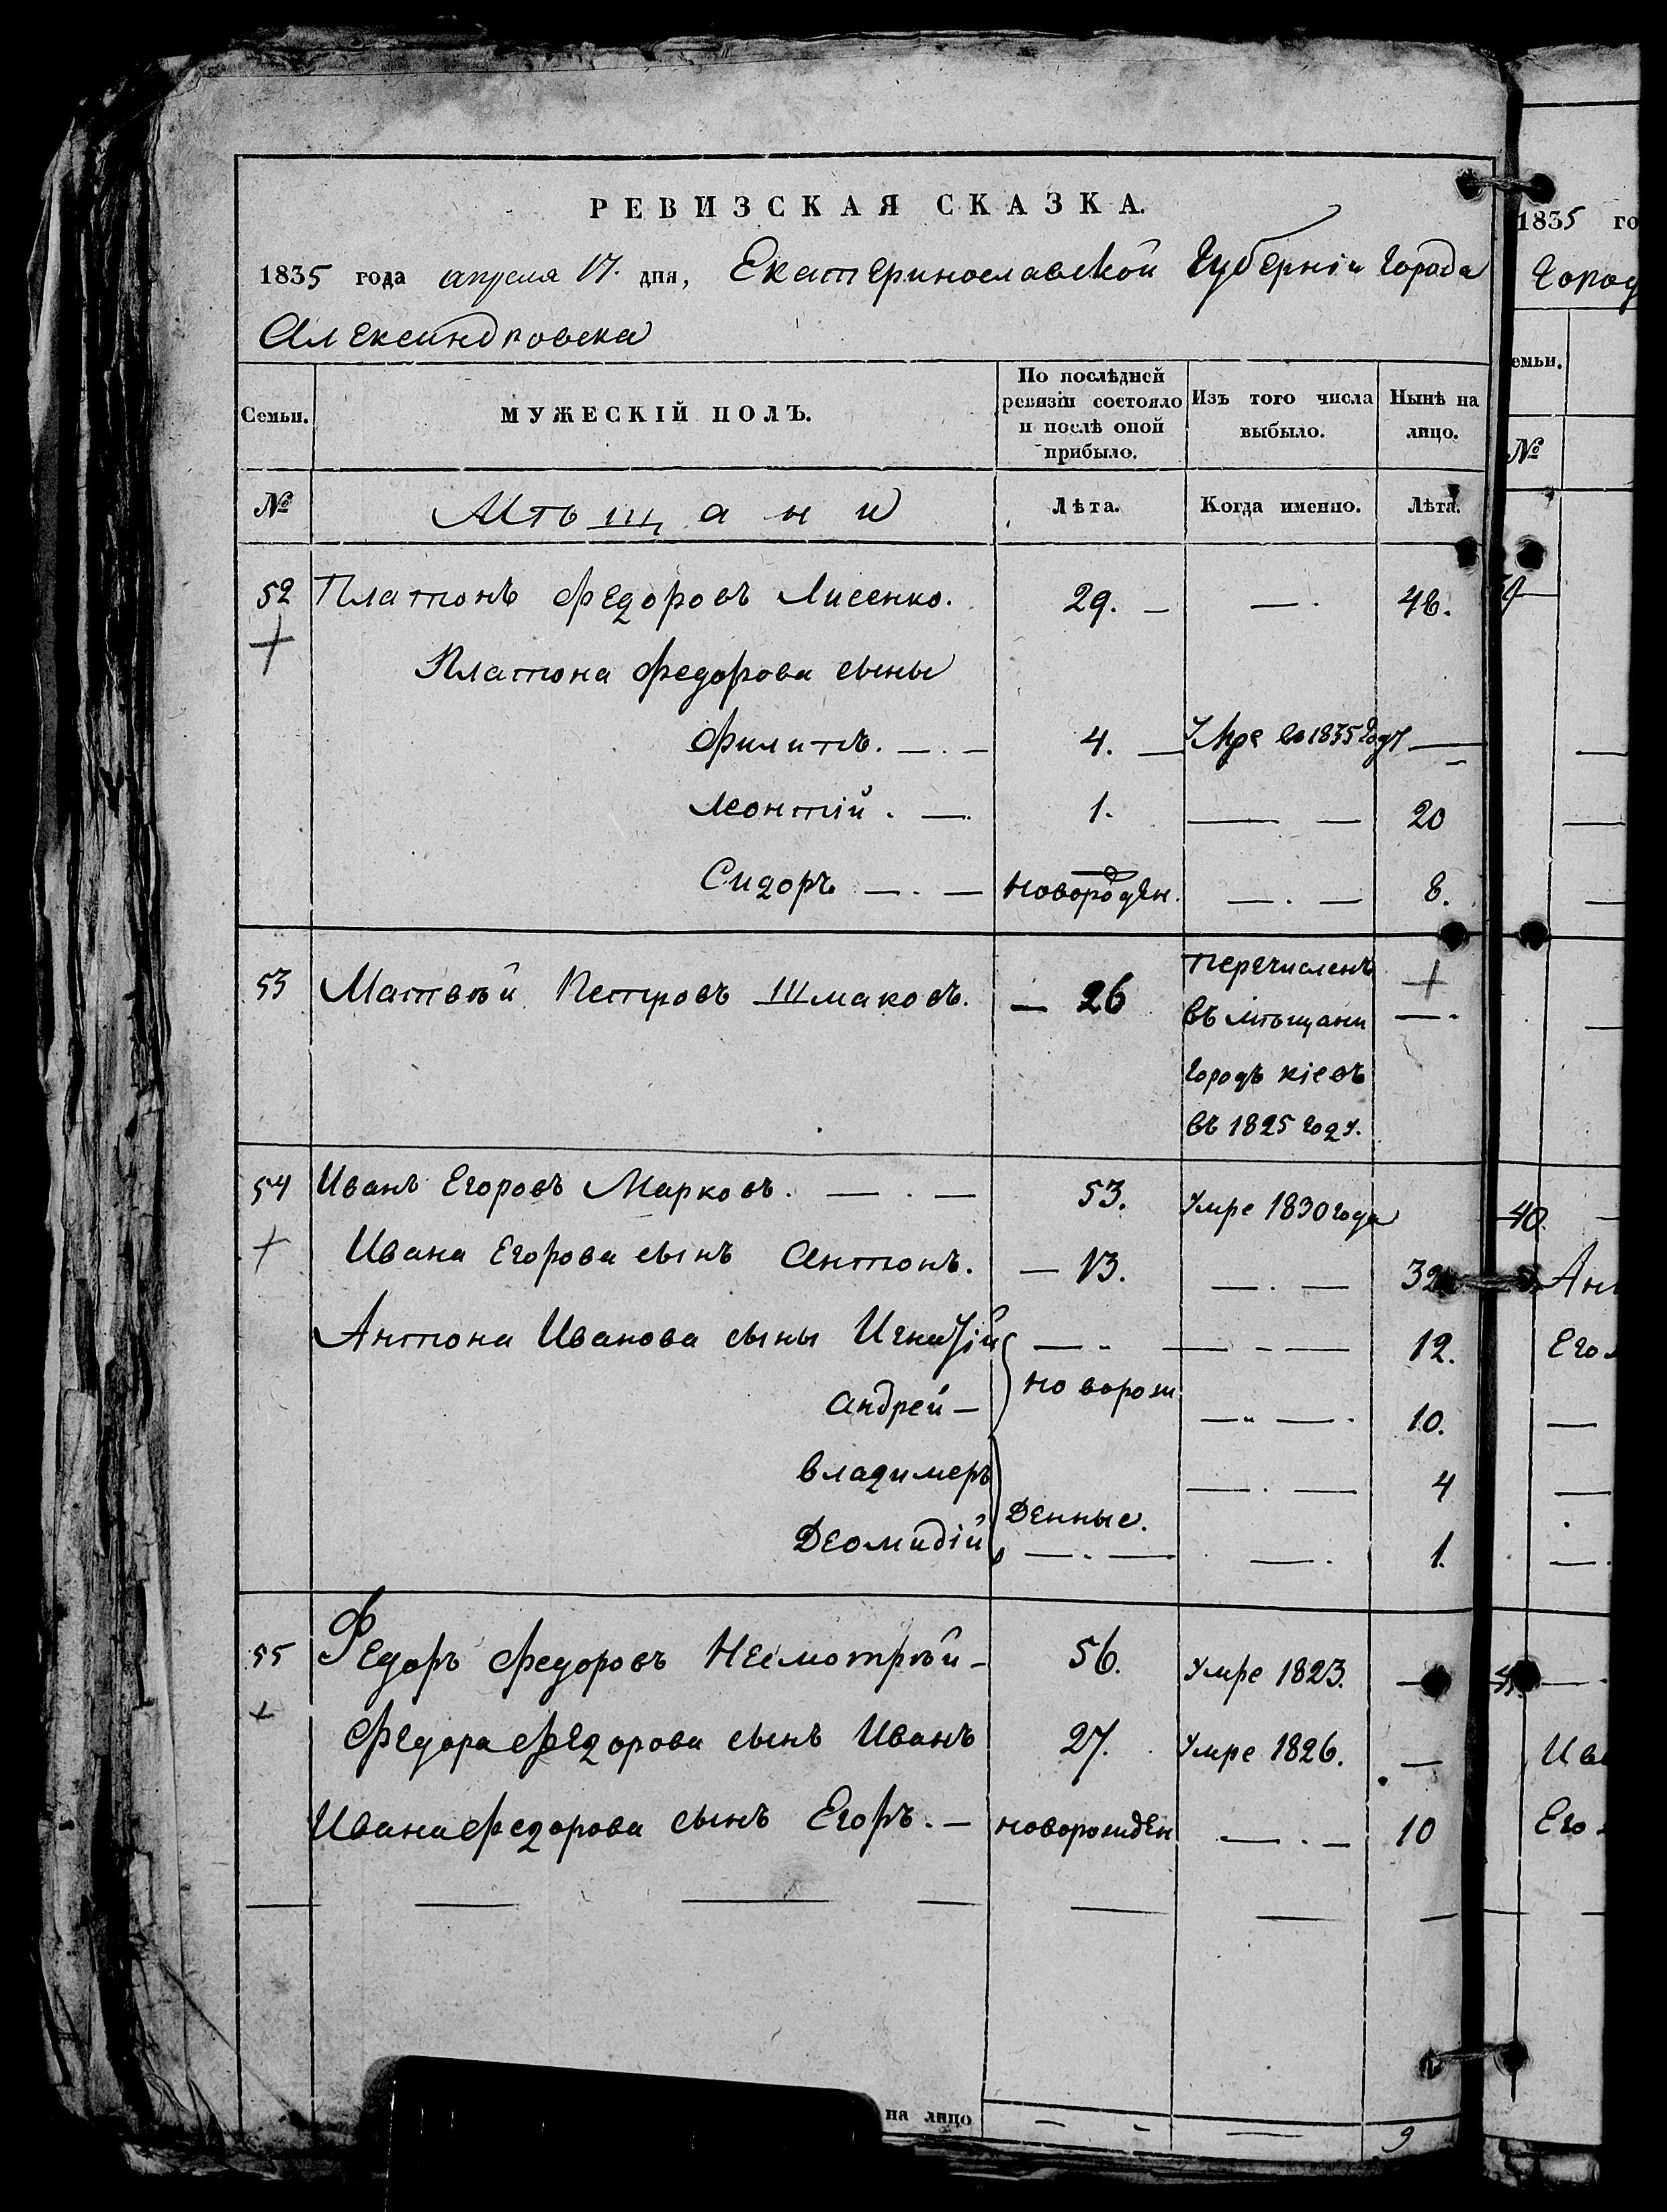 РЕВИЗСКАЯ СКАЗКА.
1835 года апреля 17. дня, Екатеринославской Губерніи Города
Александровска
Семьи. МУЖЕСКІЙ ПОЛЪ. По послѣдней ревизіи состояло и послѣ оной прибыло. Изъ того числа выбыло. Нынѣ на лицо.
№ Мѣщани Лѣта. Когда именно. Лѣта.
52 Платонъ Федоровъ Лисенко. 29. — — . 48.
Платона Федорова сыны
Филипъ. — . — 4. — Умре въ 1835 Году —
Леонтій . — 1. — — 20
Сидоръ — . — новорожден. — . — 8.
53 Матвѣй Петровъ Шмаковъ. — 26 перечисленъ
въ мѣщани — .
Городъ кіевъ
въ 1825 году.
54 Иванъ Егоровъ Марковъ. — . — 53. Умре 1830 года
Ивана Егорова сынъ Антонъ. — 13. — . — 32
Антона Иванова сыны Игнатій — — 12.
новорож
Андрей — — — . 10.
владимеръ — . — 4
денные.
Деомидій — . — — . 1.
55 Федоръ Федоровъ Несмотрѣй — 56. Умре 1823. —
Федора Федорова сынъ Иванъ 27. Умре 1826. —
Ивана Федорова сынъ Егоръ. — новорожден — . — 10
на лицо — — — 9
1835 го
Город
емьи.
№
40.
Ан
Его
Ива
Его